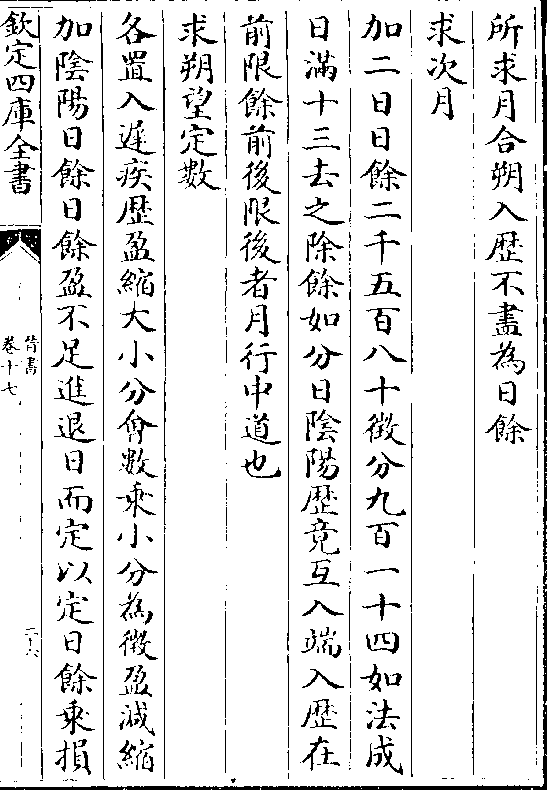 所求月合朔入歴不盡為日餘
求次月
加二日日餘二千五百八十微分九百一十四如法成
日滿十三去之除餘如分日隂陽歴竟互入端入歴在
前限餘前後限後者月行中道也
求朔望定數
各置入遲疾歴盈縮大小分㑹數乘小分為微盈減縮
加隂陽日餘日餘盈不足進退日而定以定日餘乘損
欽定四庫全書
晉書
卷十七
二十六